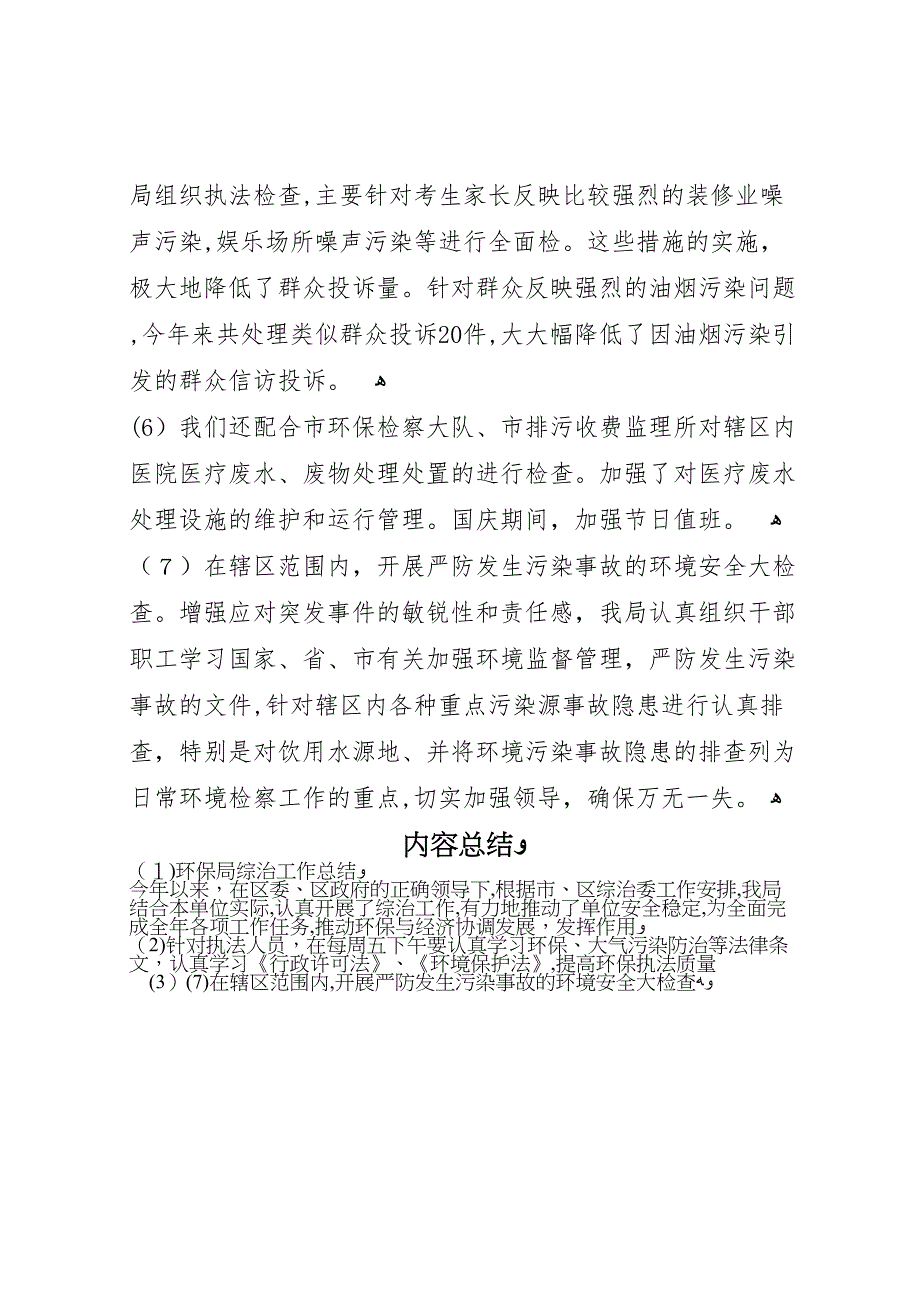 局组织执法检查,主要针对考生家长反映比较强烈的装修业噪
声污染,娱乐场所噪声污染等进行全面检。这些措施的实施，
极大地降低了群众投诉量。针对群众反映强烈的油烟污染问题
,今年来共处理类似群众投诉20件,大大幅降低了因油烟污染引
发的群众信访投诉。 ﻫ
(6）我们还配合市环保检察大队、市排污收费监理所对辖区内
医院医疗废水、废物处理处置的进行检查。加强了对医疗废水
处理设施的维护和运行管理。国庆期间，加强节日值班。 ﻫ
（７）在辖区范围内，开展严防发生污染事故的环境安全大检
查。增强应对突发事件的敏锐性和责任感，我局认真组织干部
职工学习国家、省、市有关加强环境监督管理，严防发生污染
事故的文件,针对辖区内各种重点污染源事故隐患进行认真排
查，特别是对饮用水源地、并将环境污染事故隐患的排查列为
日常环境检察工作的重点,切实加强领导，确保万无一失。 ﻫ
内容总结ﻭ
（１)环保局综治工作总结ﻭ
今年以来，在区委、区政府的正确领导下,根据市、区综治委工作安排,我局
结合本单位实际,认真开展了综治工作,有力地推动了单位安全稳定,为全面完
成全年各项工作任务,推动环保与经济协调发展，发挥作用ﻭ
（2)针对执法人员，在每周五下午要认真学习环保、大气污染防治等法律条
文，认真学习《行政许可法》、《环境保护法》,提高环保执法质量
（3）(7)在辖区范围内,开展严防发生污染事故的环境安全大检查ﻭﻪ